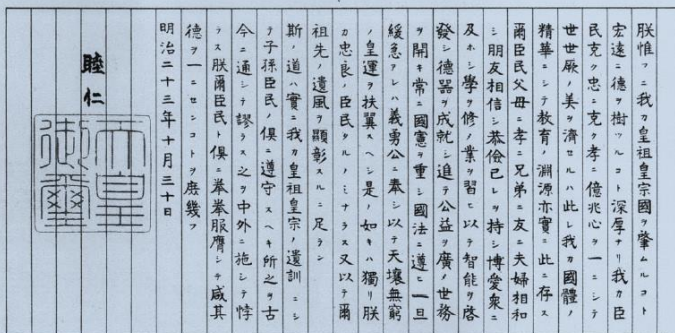 朕惟フニ我カ皇祖皇宗國ヲ肇ムルコト
宏遠ニ德ヲ樹ツルコト深厚ナリ我カ臣
民克ク忠ニ克ク孝ニ億兆心ヲ一ニシテ
世世厥ノ美ヲ濟セルハ此レ我カ國體ノ
精華ニシテ教育ノ淵源亦實ニ此ニ存ス
爾臣民父母ニ孝ニ兄弟ニ友ニ夫婦相和
シ朋友相信シ恭儉己レヲ持シ博愛衆ニ
及ホシ學ヲ修メ業ヲ習ヒ以テ智能ヲ啓
發シ德器ヲ成就シ進テ公益ヲ廣メ世務
ヲ開キ常ニ國憲ヲ重シ國法ニ遵ヒ一旦
緩急アレハ義勇公ニ奉シ以テ天壤無窮
ノ皇運ヲ扶翼スヘシ是ノ如キハ獨リ朕
カ忠良ノ臣民タルノミナラス又以テ爾
祖先ノ遺風ヲ顯彰スルニ足ラン
斯ノ道ハ實ニ我カ皇祖皇宗ノ遺訓ニシ
テ子孫臣民ノ倶ニ遵守スヘキ所之ヲ古
今ニ通シテ謬ラス之ヲ中外ニ施シテ悖
ラス朕爾臣民ト倶ニ拳拳服膺シテ咸其
德ヲ一ニセンコトヲ庶幾フ
明治二十三年十月三十日
睦仁
天皇
御璽